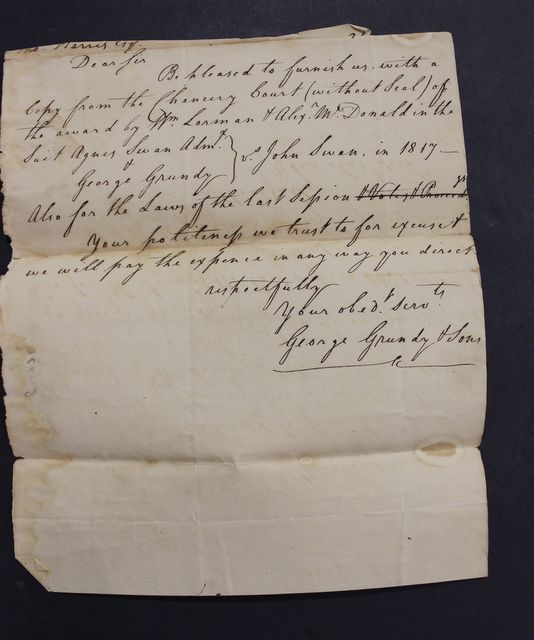 Thos. Harris Esqr.
Dear Sir
Be pleased to furnish us with a
Copy from the Chancery Court (without Seal) of
the award by Wm Lorman & Alexr. McDonald in the
Suit Agnes Swan Admx. & George Grundy } vs. John Swan, in 1817 —
Also for the Laws of the last Session & Votes & Proceedgs
Your politeness we trust to for excuse &
we will pay the expence in any way you direct
respectfully
Your obedt. Servts
George Grundy & Sons